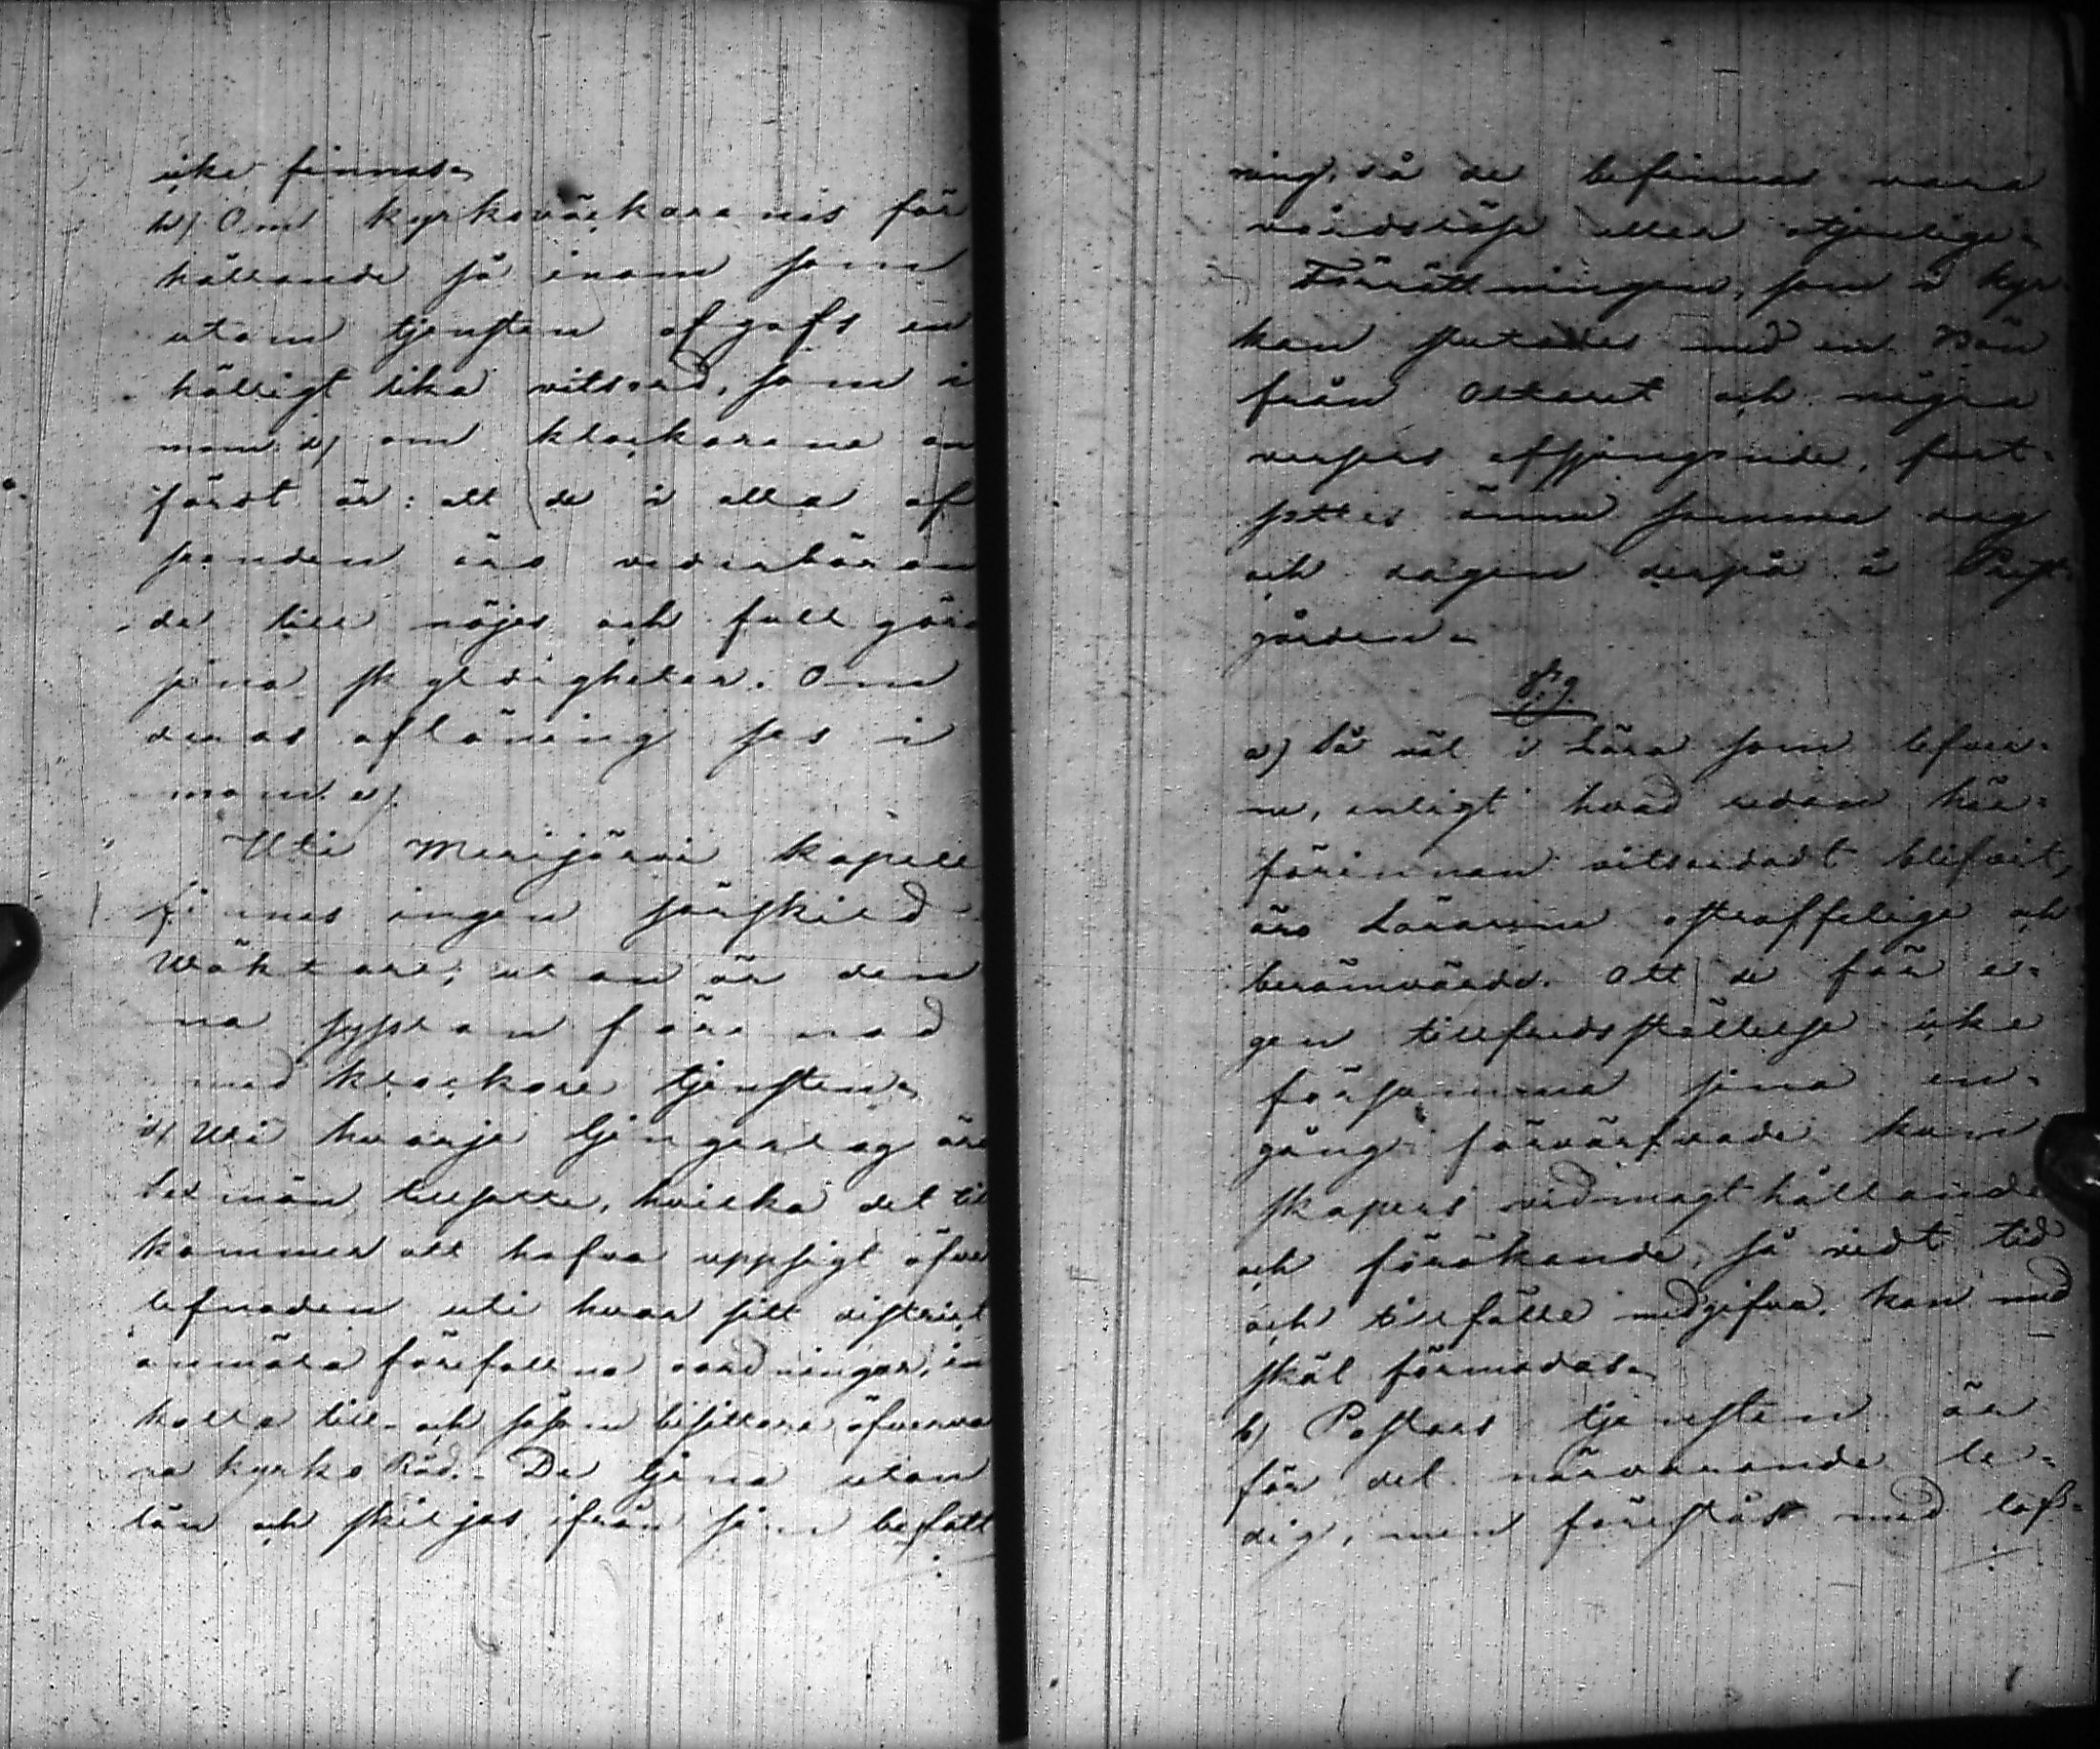 icke finnas.
h) Om kyrkoväckarenes för
hållande så inom som
utom tjensten afgafs en
hälligt lika vitsord, som i
mom. d) om klockarena an
fördt är: att de i alla af
seenden äro vederböran
de till nöjes och full göra
sina skyldigheter. Om
deras aflöning ses i
mom. e).
Uti Merijärvi kapell
finnes ingen särskild
Wäktare, utan är den
na sysslan förenad
med klockare tjensten.
i) Uti hvarje tjengerlag äro
sex män tillsatte, hvilka det till
kommer att hafva uppsigt öfver
lefnaden uti hvar sitt distrikt
anmäla förefallna oordningar, in
kalla till- och såsom bisittare öfverva
ra kyrko Råd. De tjena utan
lön och skiljas ifrån sin befatt
ning, då de befinnas vara
vårdslöse eller otjenlige.
Förrättningen, som i kyr-
kan slutades med en Bön
från Altaret och några
versers afsjungande, fort-
sattes ännu samma dag
och dagen derpå i Prest-
gården.
§. 9.
a) Så väl i Lära som lefver-
ne, enligt hvad redan här-
förinnan vitsordadt blifvit,
äro Lärarene ostraffelige och
berömvärde. Att de för e-
gen tillfredsställelse icke
försumma sina en-
gång förvärfvade kun
skapers vidmagthållande
och förökande, så vidt tid
och tillfälle medgifva, kan med
skäl förmodas.
b) Pastors tjensten är
för det närvarande le-
dig, men förestås med lof-